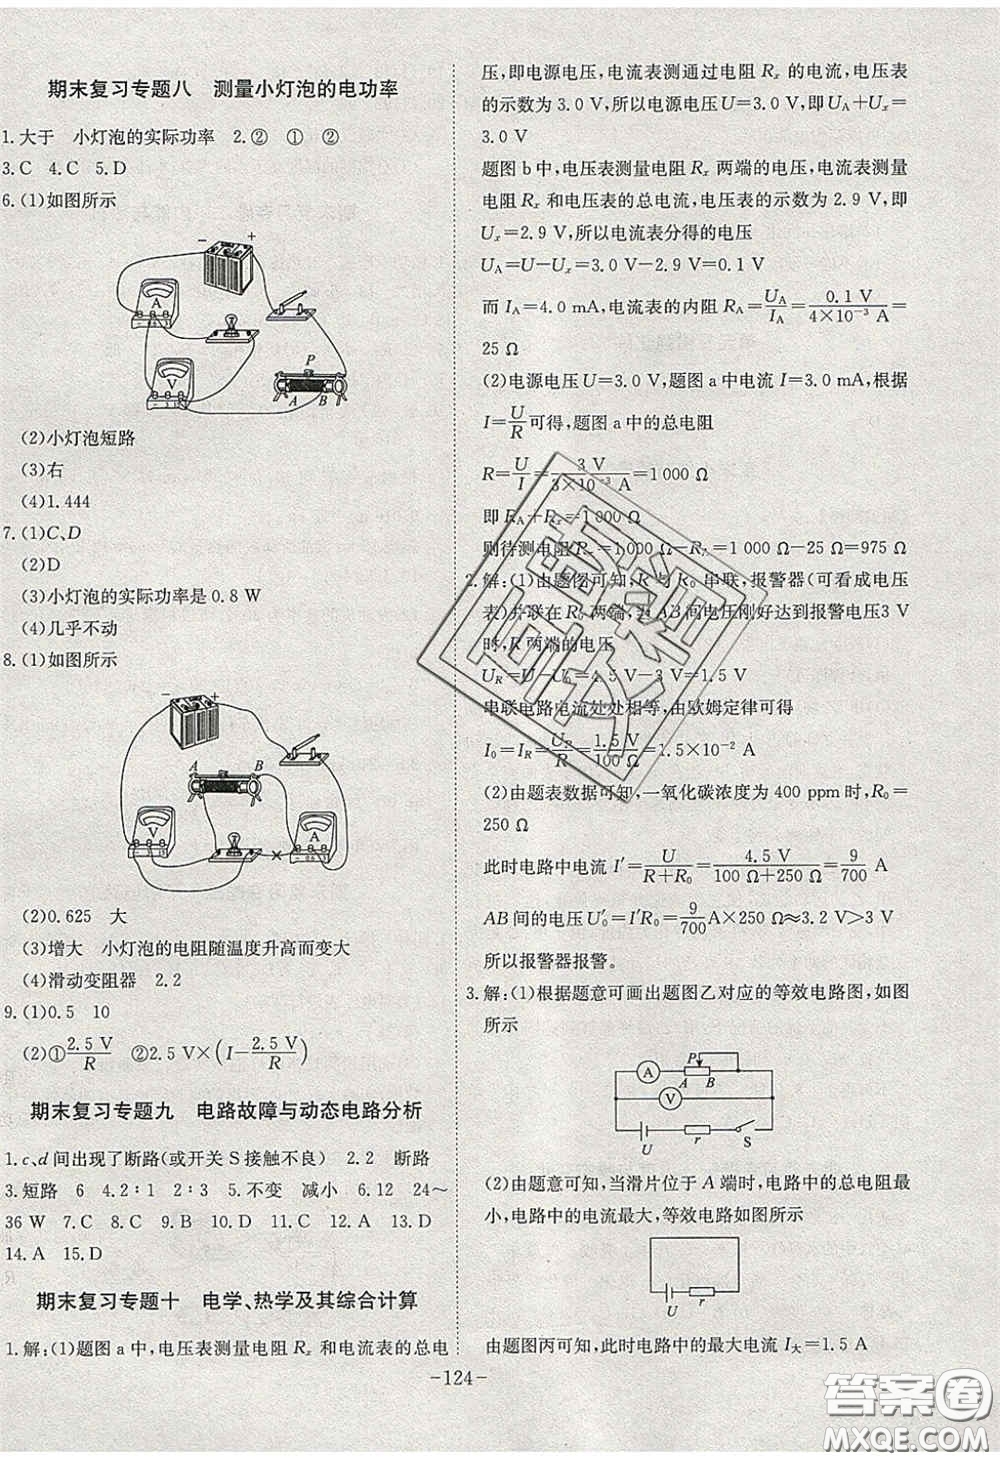 期末复习专题八　测量小灯泡的电功率
1.大于　小灯泡的实际功率　2.②　①　②
3.C　4.C　5.D
6.(1)如图所示
− +
A
V
P
A B
(2)小灯泡短路
(3)右
(4)1.444
7.(1)C、D
(2)D
(3)小灯泡的实际功率是 0.8 W
(4)几乎不动
8.(1)如图所示
+ −
A B
V
A
(2)0.625　大
(3)增大　小灯泡的电阻随温度升高而变大
(4)滑动变阻器　2.2
9.(1)0.5　10
(2)①2.5 V/R　②2.5 V×(I−2.5 V/R)
期末复习专题九　电路故障与动态电路分析
1.c、d 间出现了断路(或开关 S 接触不良)　2.2　断路
3.短路　6　4.2∶1　2∶3　5.不变　减小　6.12　24～
36 W　7.C　8.C　9.B　10.D　11.C　12.A　13.D
14.A　15.D
期末复习专题十　电学、热学及其综合计算
1.解:(1)题图 a 中,电压表测量电阻 Rx 和电流表的总电
压,即电源电压,电流表测通过电阻 Rx 的电流,电压表
的示数为 3.0 V,所以电源电压 U=3.0 V,即 UA+Ux=
3.0 V
题图 b 中,电压表测量电阻 Rx 两端的电压,电流表测量
电阻 Rx 和电压表的总电流,电压表的示数为 2.9 V,即
Ux=2.9 V,所以电流表分得的电压
UA=U−Ux=3.0 V−2.9 V=0.1 V
而 IA=4.0 mA,电流表的内阻 RA=UA/IA=0.1 V/4×10⁻³ A=
25 Ω
(2)电源电压 U=3.0 V,题图 a 中电流 I=3.0 mA,根据
I=U/R可得,题图 a 中的总电阻
R=U/I=3 V/3×10⁻³ A=1 000 Ω
即 RA+Rx=1 000 Ω
则待测电阻 Rx=1 000 Ω−RA=1 000 Ω−25 Ω=975 Ω
2.解:(1)由题图可知,R 与 R0 串联,报警器(可看成电压
表)并联在 R0 两端,当 AB 间电压刚好达到报警电压3 V
时,R 两端的电压
UR=U−U0=4.5 V−3 V=1.5 V
串联电路电流处处相等,由欧姆定律可得
I0=IR=UR/R=1.5 V/100 Ω=1.5×10⁻² A
(2)由题表数据可知,一氧化碳浓度为 400 ppm 时,R0=
250 Ω
此时电路中电流 I′=U/(R+R0)=4.5 V/(100 Ω+250 Ω)=9/700 A
AB 间的电压 U′0=I′R0=9/700 A×250 Ω≈3.2 V>3 V
所以报警器报警。
3.解:(1)根据题意可画出题图乙对应的等效电路图,如图
所示
P
A
A B
V
U r S
(2)由题意可知,当滑片位于 A 端时,电路中的总电阻最
小,电路中的电流最大,等效电路如图所示
U r
由题图丙可知,此时电路中的最大电流 I大=1.5 A
-124-
答案圈
MXQE.COM